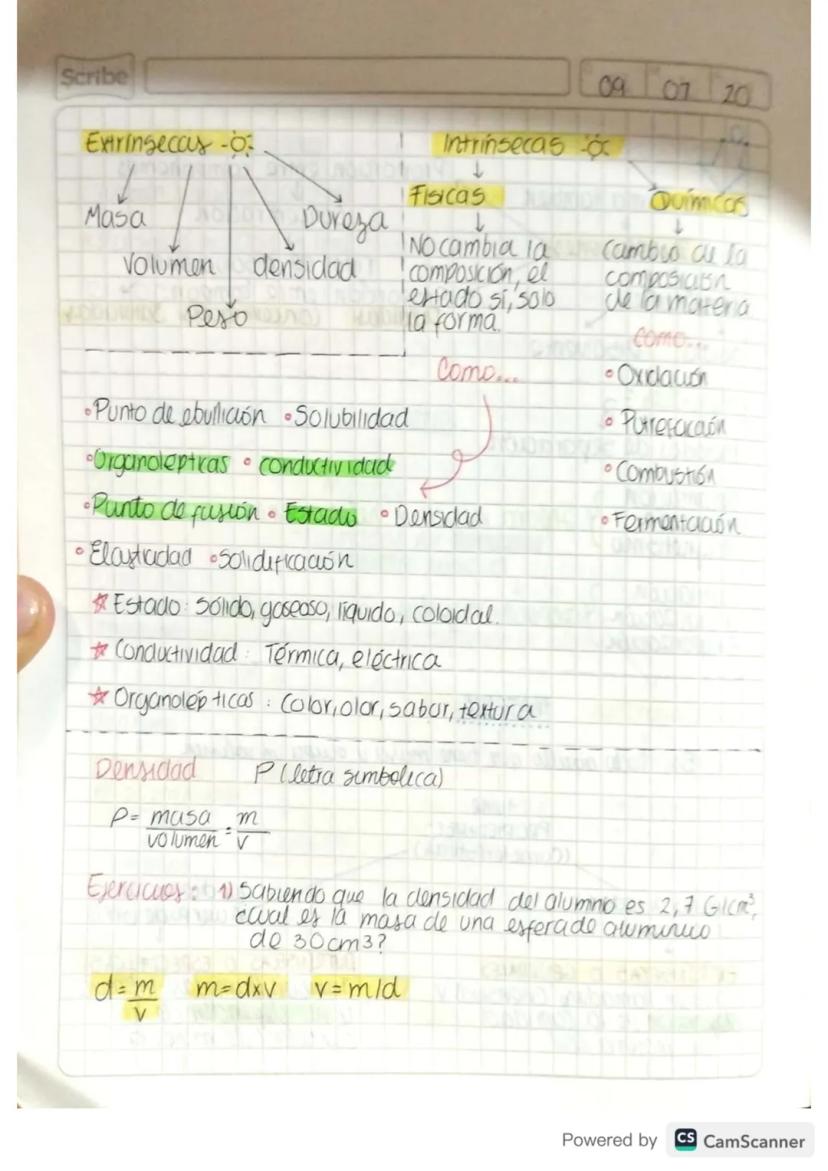 Scribe
09 07 20
Extrínsecas
Masa
Volumen
Peso
densidad
Dureza
Intrínsecas
Físicas
No cambia la
composición, el
estado sí, solo
la forma.
Como...
Químicas
Cambio de la
composición
de la materia
Como...
• Oxidación
• Putrefacción
• Combustión
• Fermentación
• Punto de ebullición • Solubilidad
• Organolépticas • conductividad
• Punto de fusión • Estado • Densidad
• Elasticidad • Solidificación
☆ Estado: Sólido, gaseoso, líquido, coloidal.
☆ Conductividad: Térmica, eléctrica
☆ Organolépticas: Color, olor, sabor, textura
Densidad P (letra simbolica)
P= masa/volumen = m/v
Ejercicios: 1) Sabiendo que la densidad del alumnio es 2,7 G/cm³,
cual es la masa de una esfera de aluminico
de 30cm3?
d= m/v m=dxv v=m/d
Powered by CS CamScanner